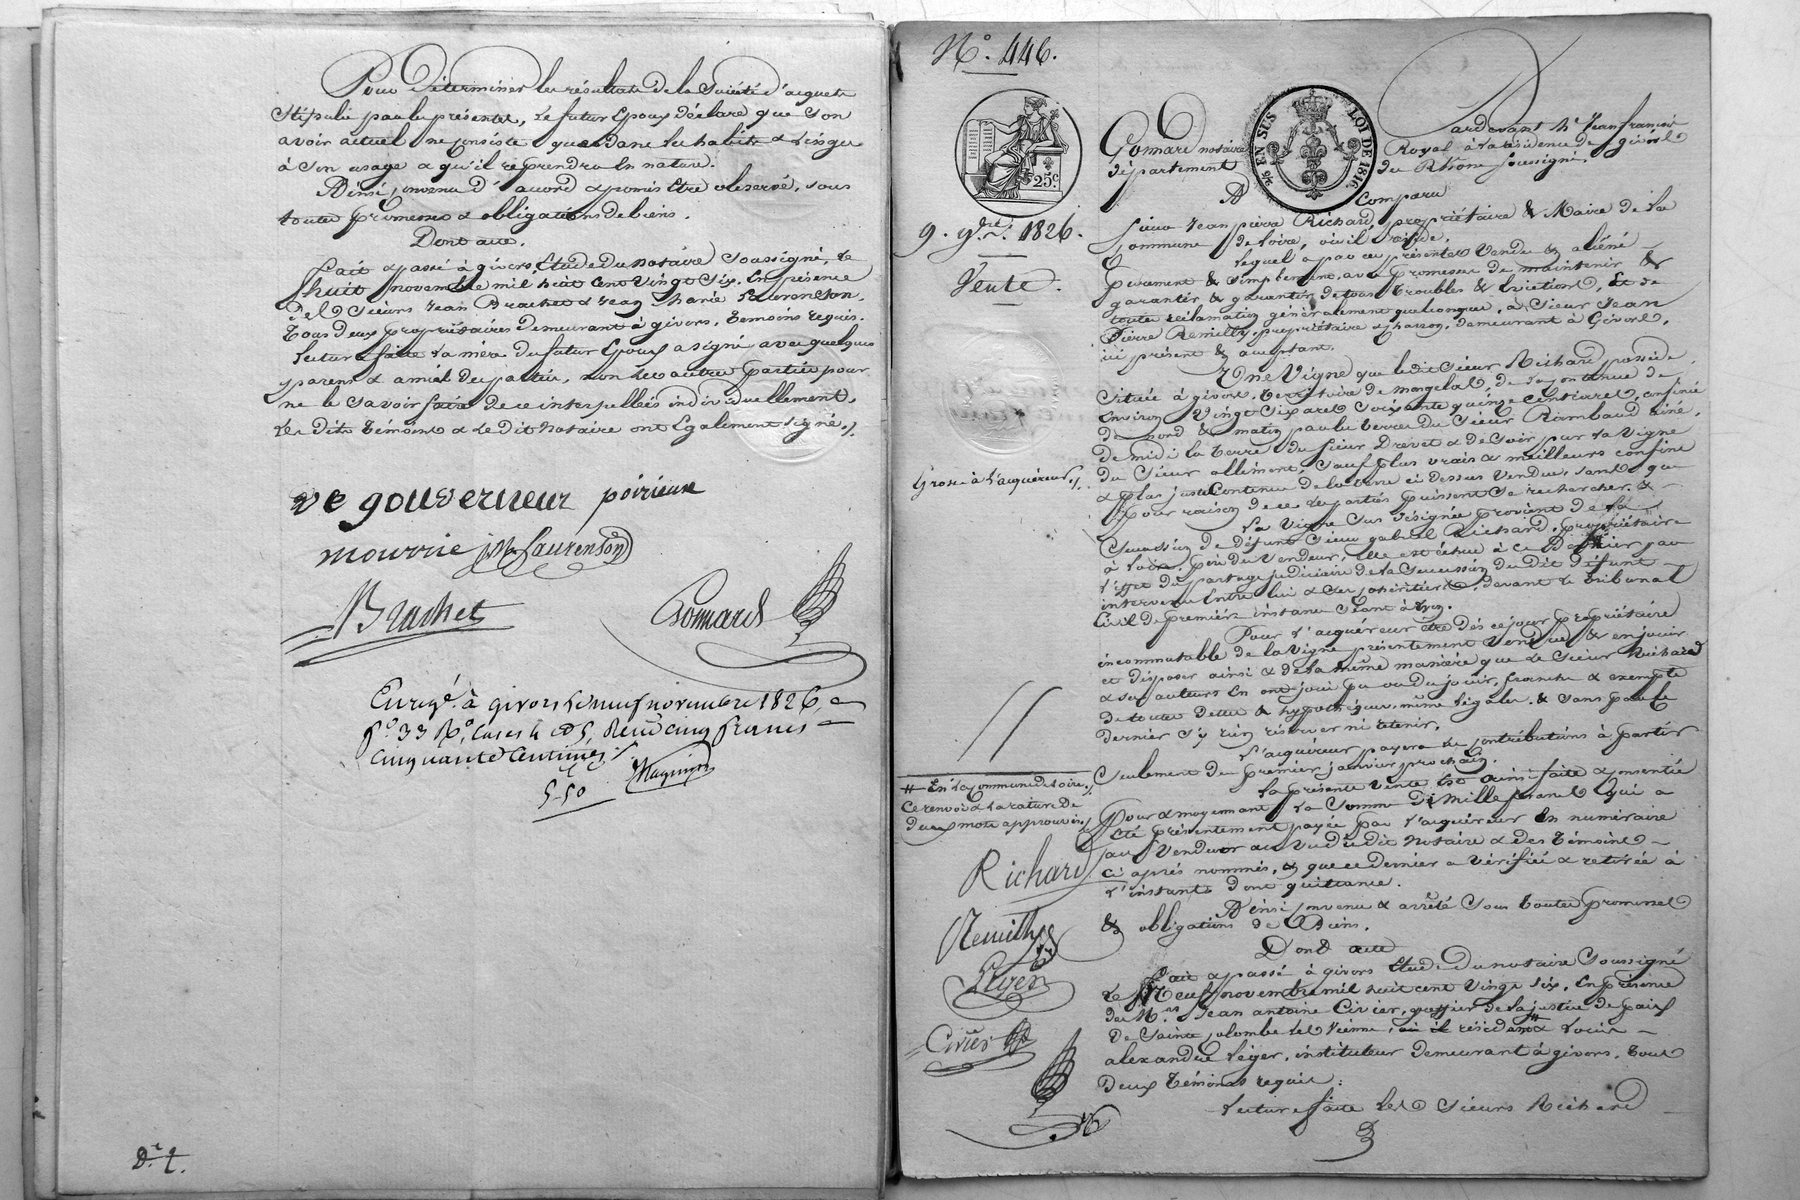 Pour déterminer les résultats de la Société d'acquets
Stipulée par les présentes, le futur Epoux déclare que Son
avoir actuel ne consiste que dans les habits & linges
à Son usage & qu'il reprendra En nature.
Ainsi convenu d'accord & promis Etre observé, sous
toutes promesses & obligations de biens.
Dont acte.
fait & passé à givors, Etude du notaire Soussigné, le
huit novembre mil huit Cent Vingt Six. En présence
Des Sieurs Jean Brachet & Jean Marie Laurenson.
Tous deux propriétaires demeurant à givors. témoins requis.
Lecture faite la mère du futur Epoux a signé avec quelques
parens & amis des parties, non les autres parties pour
ne le savoir faire de ce interpellées individuellement,
Les dits témoins & Le Dit notaire ont Egalement signé./.
ve gouverneur poirieux
mourrie JM Laurenson
Brachet
Gonnard
Enregé. à givors le neuf novembre 1826
fo. 33 Ro. Cases 4 et 5, Reçu cinq francs
cinquante centimes./.
5-50
De. L.
No. 446.
25c
EN SUS
LOI DE 1816
9. 9bre. 1826.
Vente.
Grosse à l'acquéreur./.
Pardevant Me Jean francois
Gonnard notaire Royal à la résidence de givors
département du Rhone soussigné,
A Comparu
Sieur Jean pierre Richard, propriétaire & Maire de la
Commune de Loire, où il réside.
Lequel a par ces présentes Vendu & aliéné
purement & simplement, avec promesse de maintenir &
garantir & garantir de tous troubles & Evictions, & de
toute réclamation généralement quelconque, à Sieur Jean
Pierre Remilly, propriétaire & charron, demeurant à Givors,
ici présent & acceptant.
Une Vigne que ledit Sieur Richard possède
Située à givors, territoire de Mongelas, de la contenue de
Environ Vingt Six ares Soixante quinze centiares, confinée
de nord & matin par les terres du Sieur Rambaud ainé,
de midi la terre du sieur Drevet & de Soir par la Vigne
du Sieur allément, Sauf plus vrais & meilleurs confins
& plus juste Contenue de la terre ci dessus Vendue, sans que
pour raison de ce les parties puissent se rechercher.
La Vigne Sus désignée provient de la
Succession de défunt Sieur gabriel Richard, propriétaire
à Loire, père du Vendeur, elle est échue à ce Dernier par
l'effet du partage judiciaire de la Succession du dit défunt
intervenu Entre lui & ses cohéritiers, devant le tribunal
Civil de première instance Séant à Lyon.
Pour l'acquéreur être dès ce jour propriétaire
incommutable de la Vigne présentement Vendue & en jouir
et disposer ainsi & de la même manière que le Sieur Richard
& ses auteurs En ont joui pu ou du jouir, franche & exempte
de toutes dettes & hypothèques, même légales, & sans par le
dernier s'y rien réserver ni retenir.
L'acquéreur payera les contributions à partir
Seulement du premier janvier prochain.
La présente Vente Est ainsi faite & consentie
Pour & moyennant la Somme de Mille francs qui a
Eté présentement payée par l'acquéreur En numéraire
au Vendeur au Vu du dit Notaire & des témoins
ci après nommés, & que ce dernier a vérifiée & retirée à
l'instant dont quittance.
Ainsi convenu & arrêté Sous toutes promesses
& obligations de Biens.
Dont acte
fait & passé à givors Etude du notaire Soussigné
le Neuf novembre mil huit cent vingt six, En présence
de Mrs. Jean antoine Civier, greffier de la justice de paix
De Sainte Colombe les Vienne, où il résidant # & Louis
alexandre Léger, instituteur demeurant à givors, tous
deux témoins requis.
Lecture faite Les Sieurs Richard
# En la Commune de Loire,
Ce renvoi & la rature de
deux mots approuvés./.
Richard
Remilly
Leger
Civier